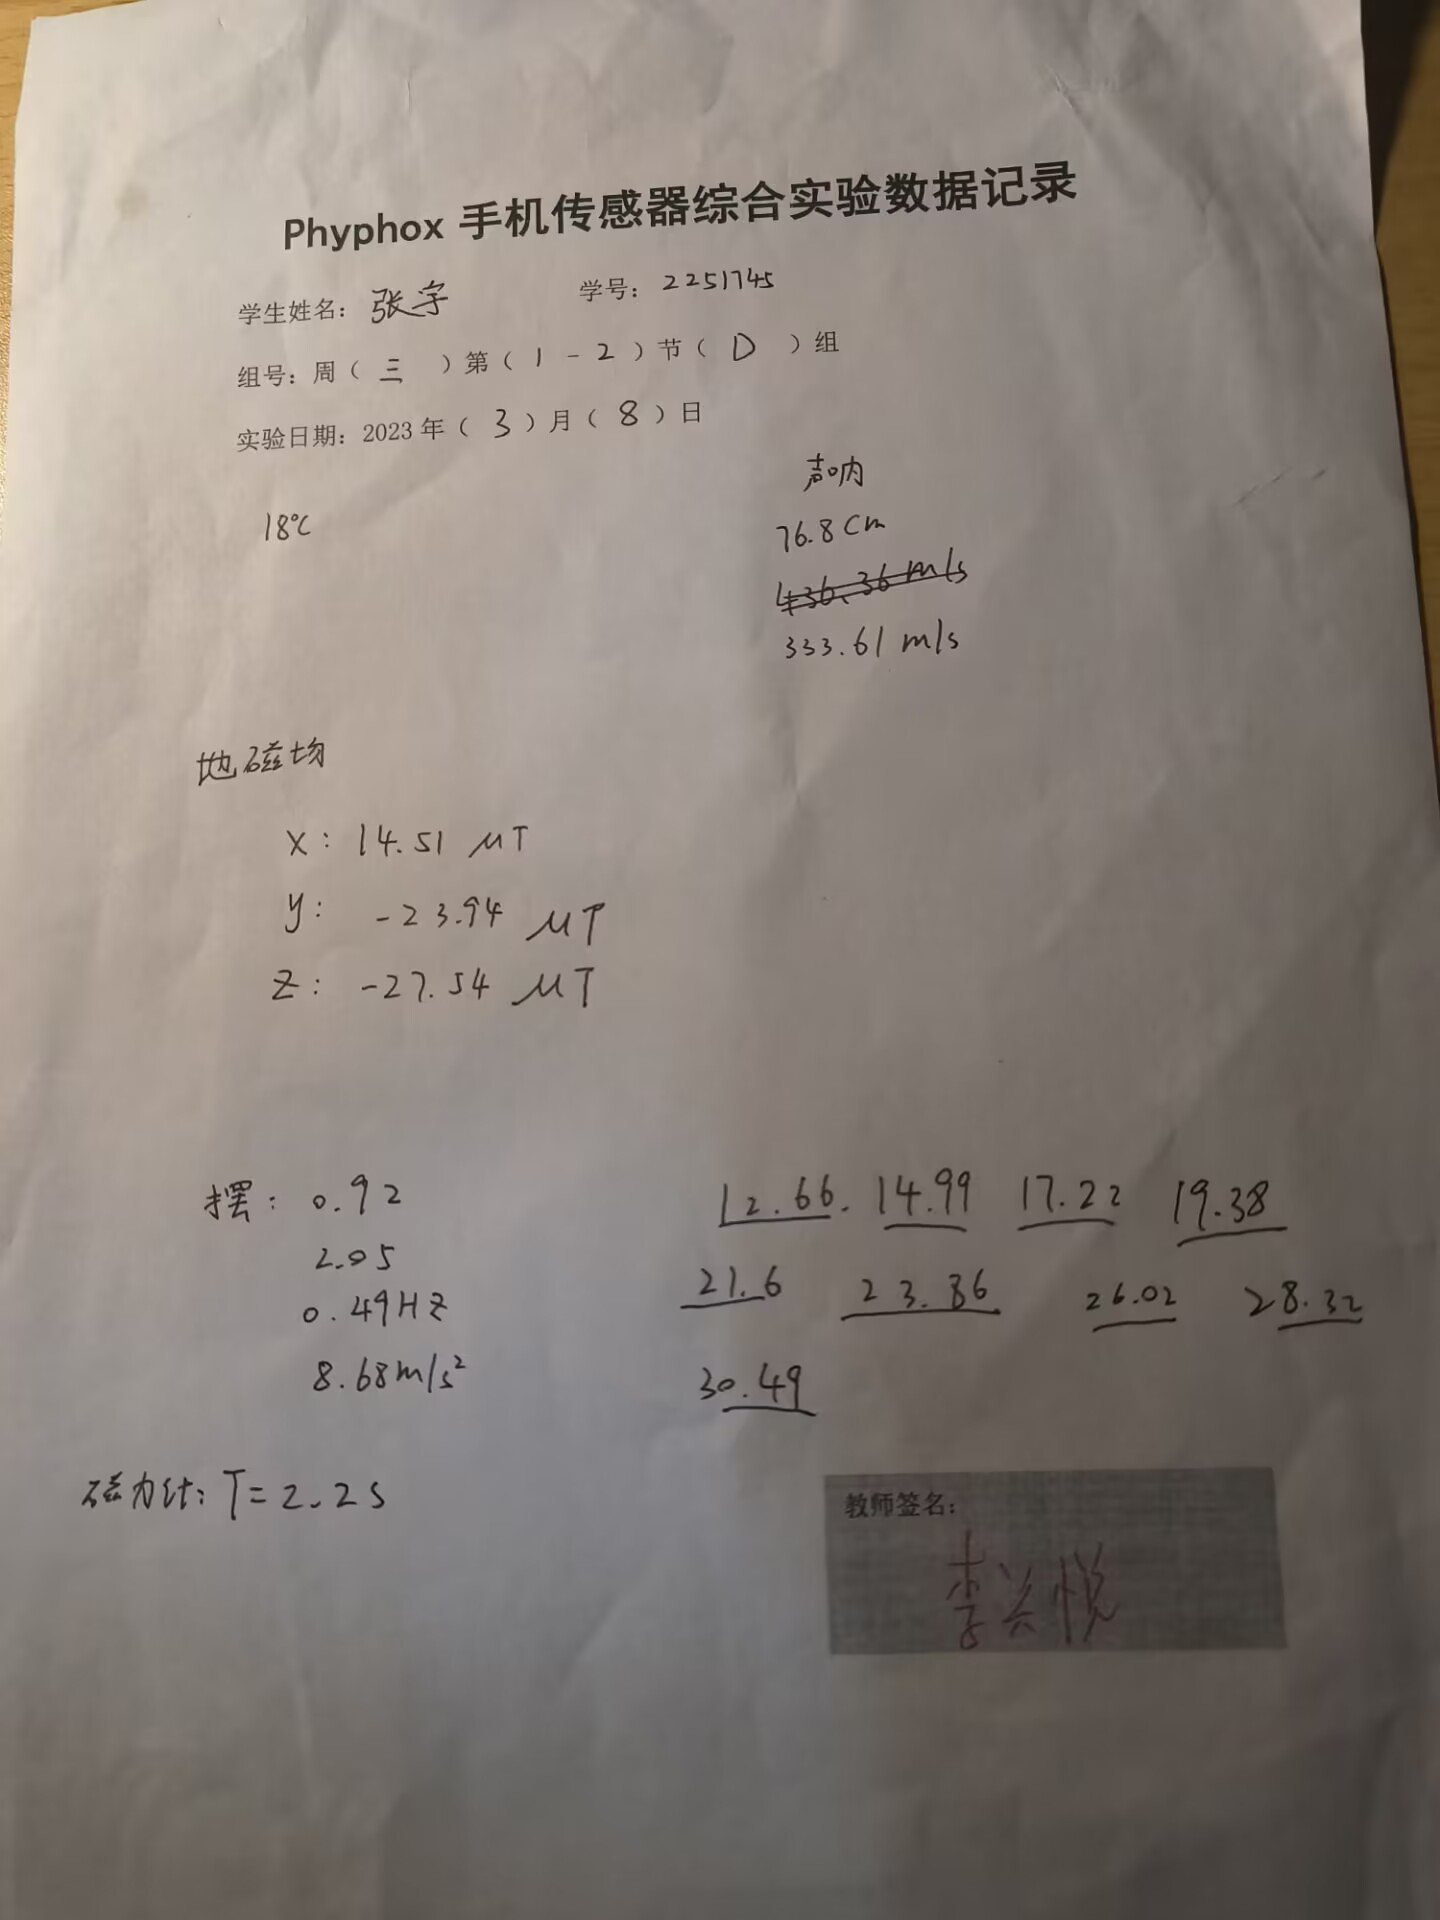 Phyphox 手机传感器综合实验数据记录
学生姓名: 张宇 学号: 2251745
组号: 周（ 三 ）第（ 1 - 2 ）节（ D ）组
实验日期: 2023 年（ 3 ）月（ 8 ）日
声呐
18℃
76.8 cm
436.36 m/s
333.61 m/s
地磁场
X: 14.51 μT
y: -23.94 μT
Z: -27.54 μT
摆: 0.92
2.05
0.49HZ
8.68m/s²
12.66. 14.99 17.22 19.38
21.6 23.86 26.02 28.32
30.49
磁力计: T=2.2s
教师签名:
李兴悦